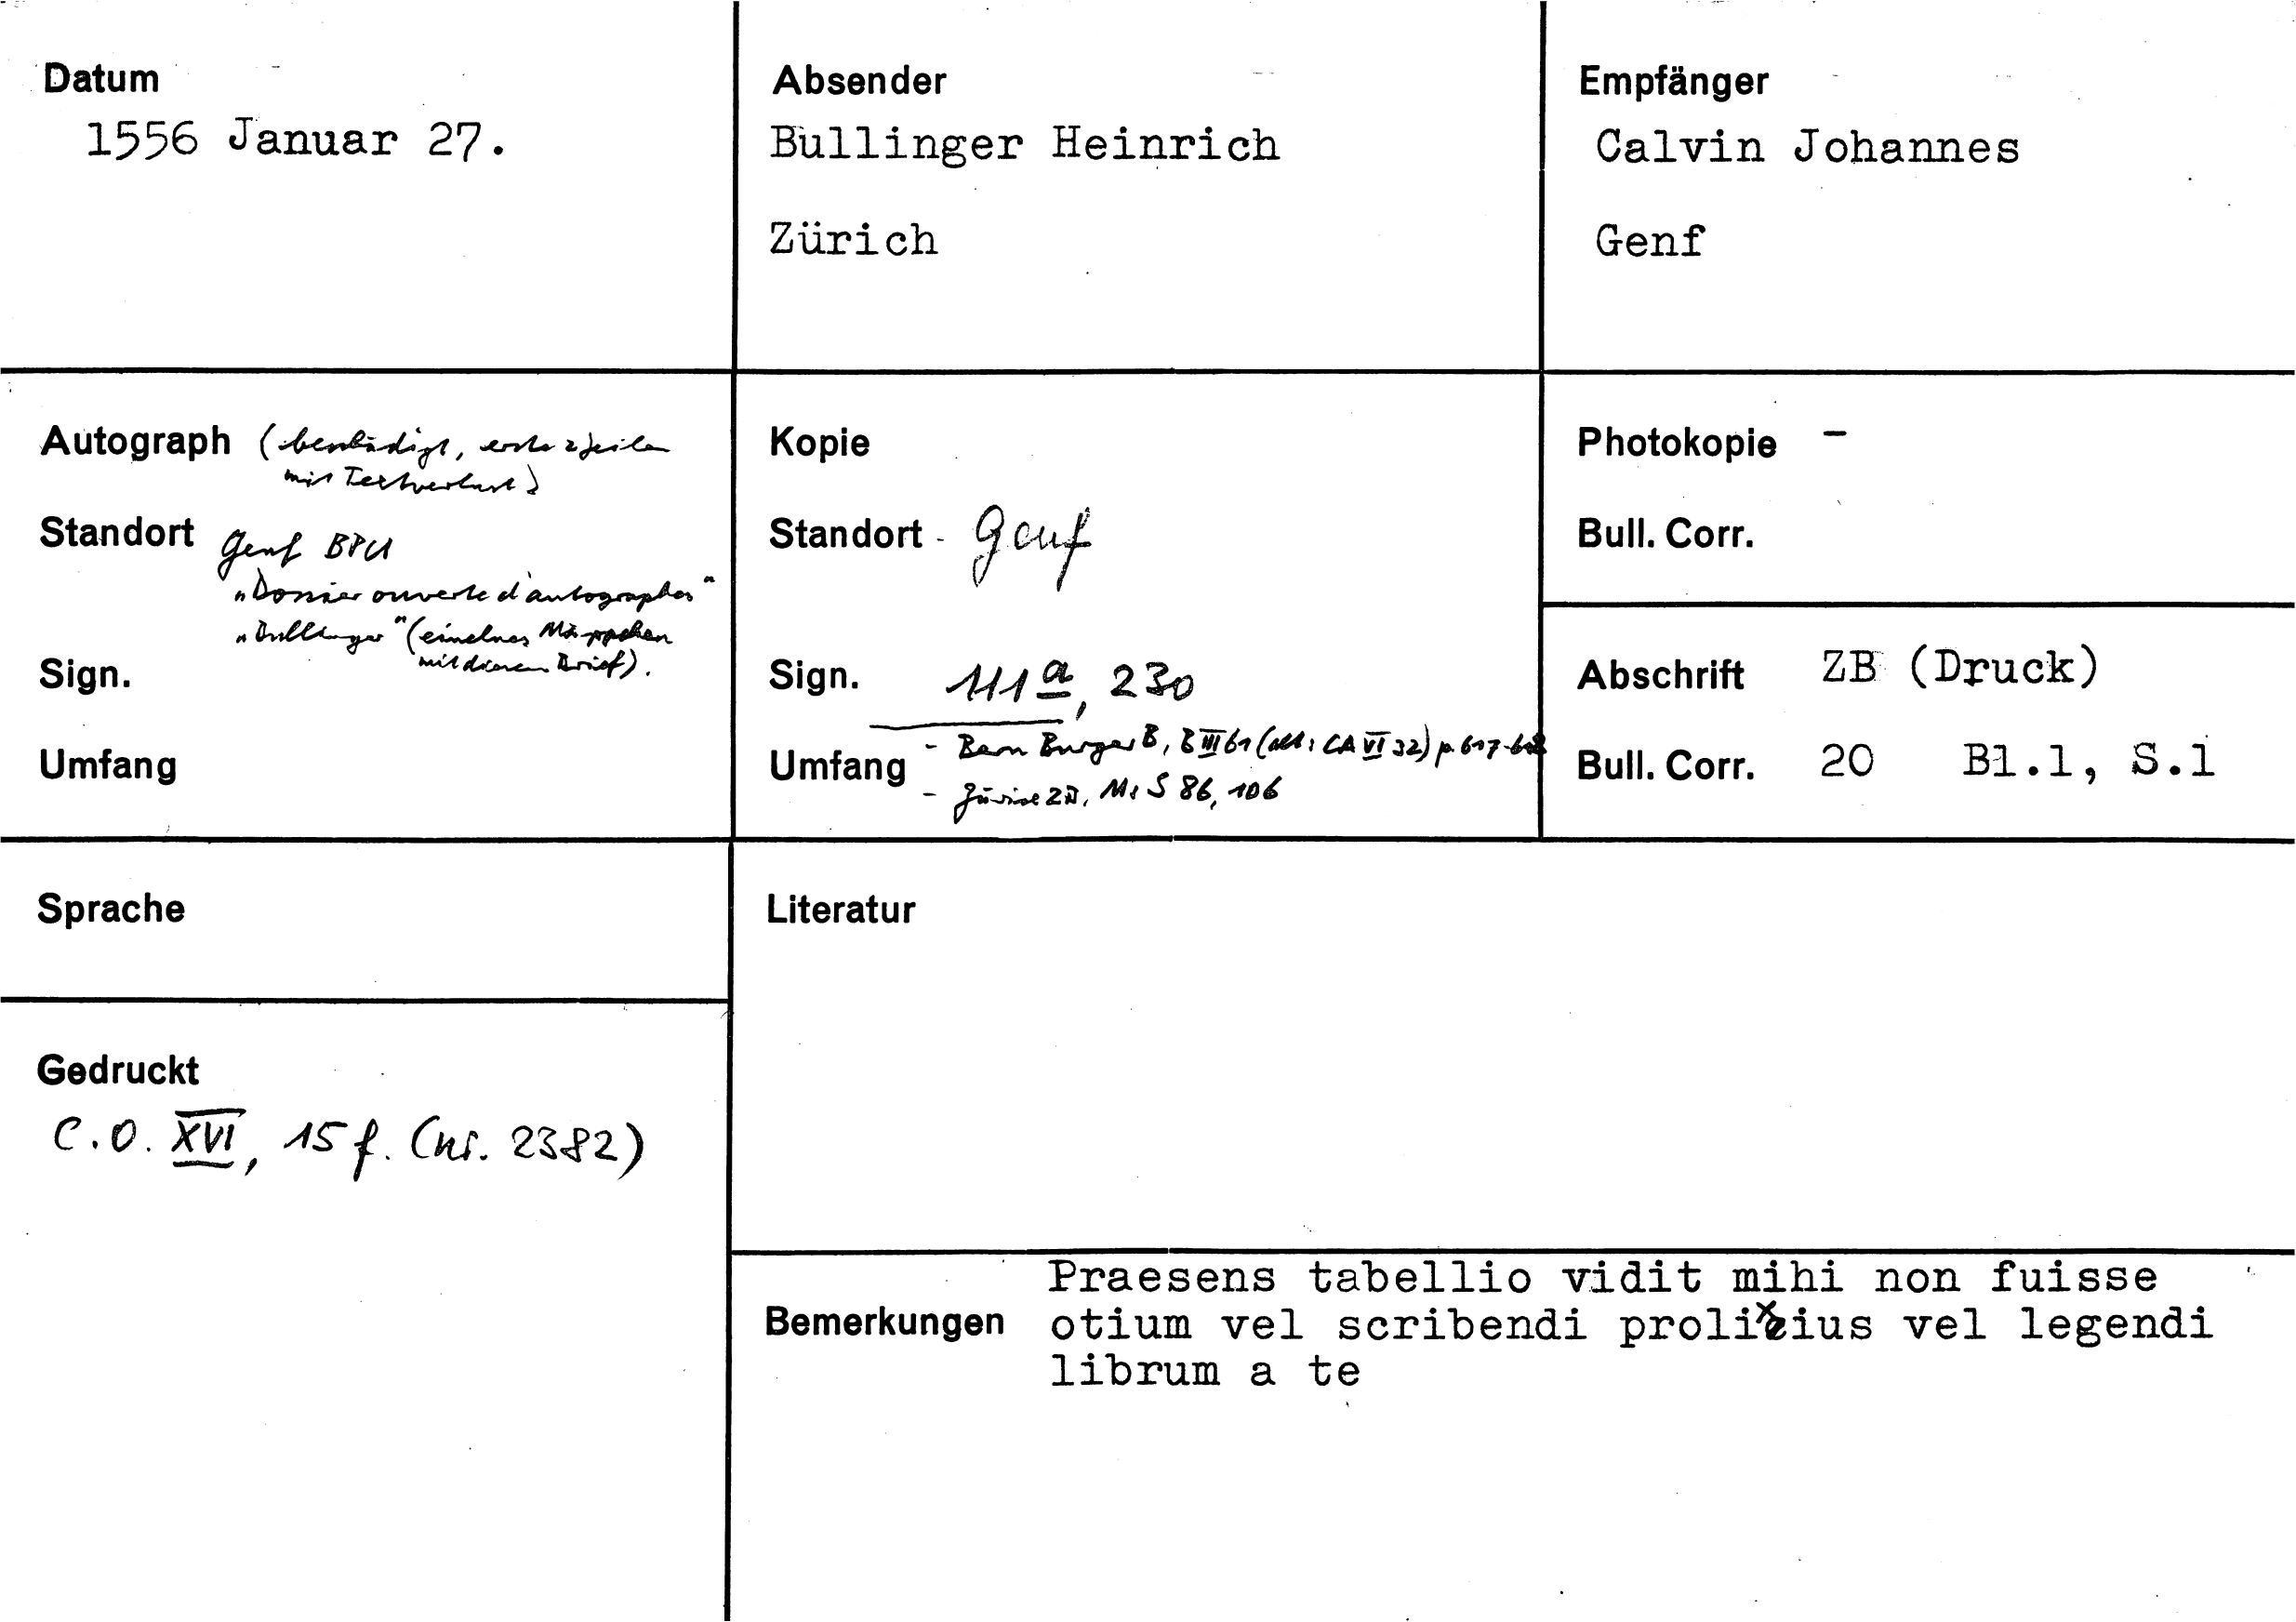 Datum
1556 Januar 27.
Absender
Bullinger Heinrich
Zürich
Empfänger
Calvin Johannes
Genf
Autograph (beschädigt, erste 2 Zeilen
mit Textverlust)
Standort Genf BPU
„Dossier ouverte d'autographes"
„Bullinger" (einzelnes Mäppchen
mit diesem Brief).
Sign.
Umfang
Kopie
Standort - Genf
Sign. 111a, 230
- Bern BurgerB, B III 61 (alt: CA VI 32) p. 617-618
Umfang
- Zürich ZB, Ms S 86, 106
Photokopie -
Bull. Corr.
Abschrift ZB (Druck)
Bull. Corr. 20 Bl.1, S.1
Sprache
Literatur
Gedruckt
C.O. XVI, 15 f. (nr. 2382)
Praesens tabellio vidit mihi non fuisse
Bemerkungen otium vel scribendi prolixius vel legendi
librum a te